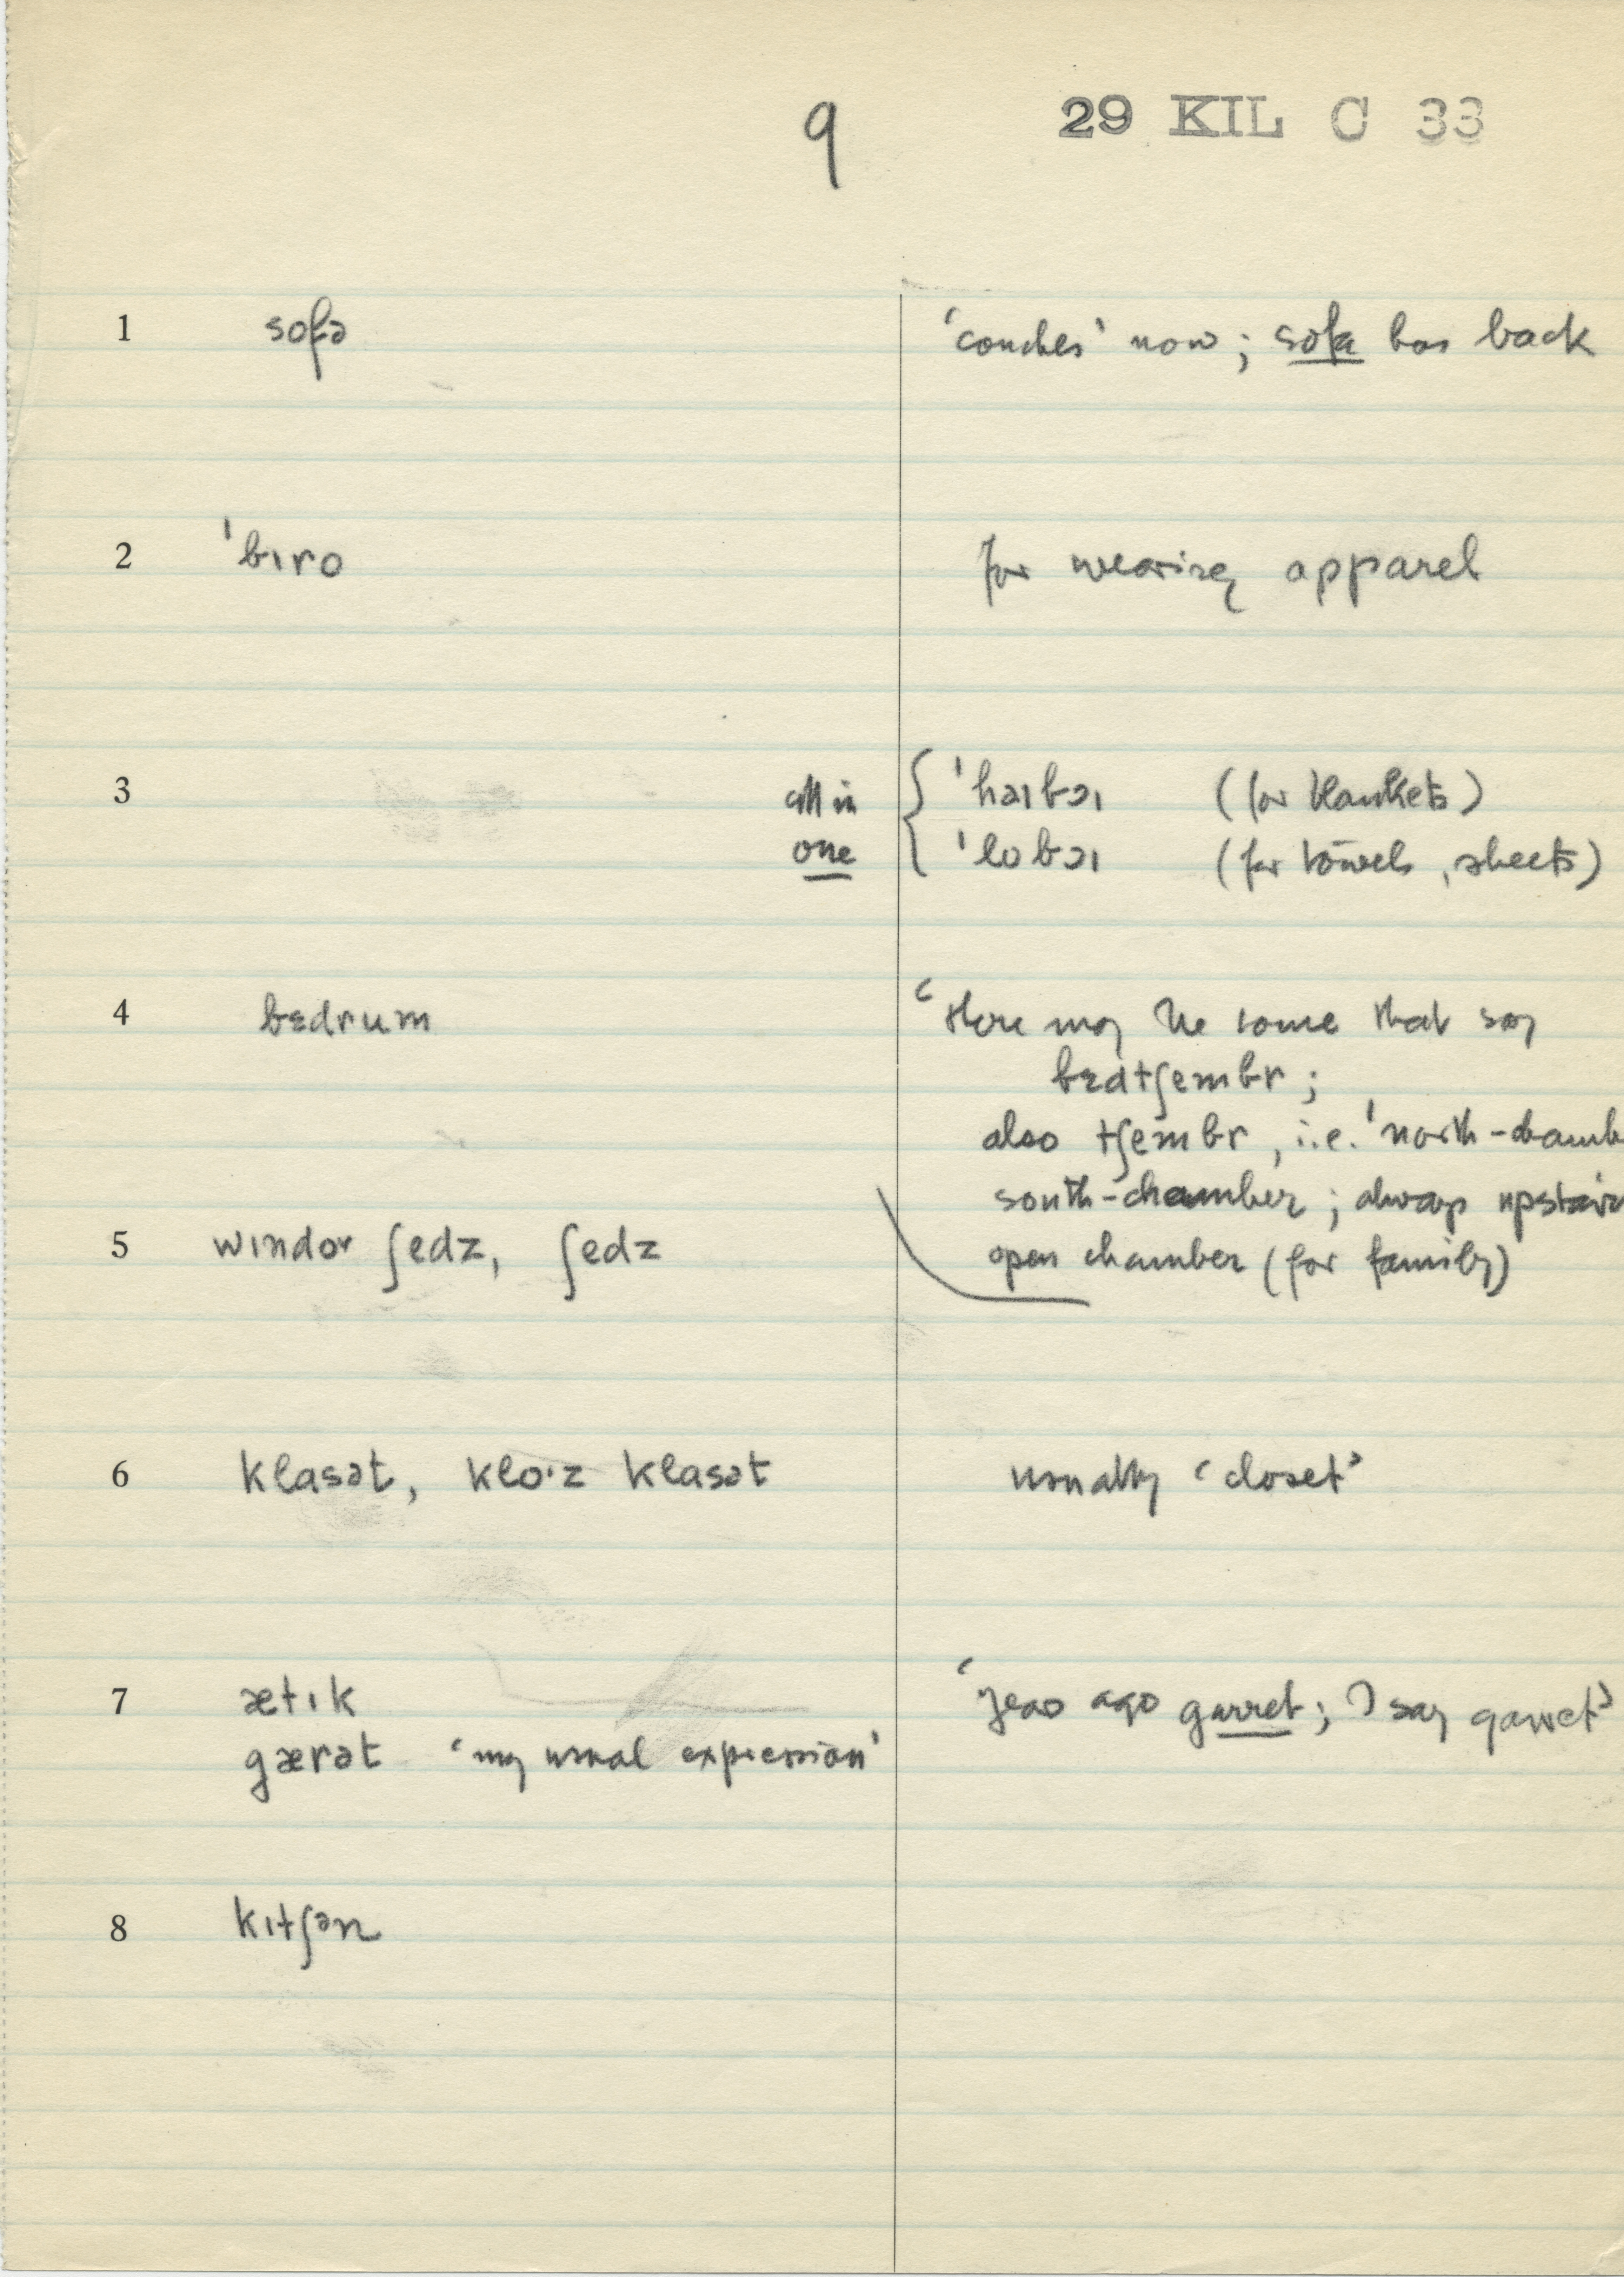 9 29 KIL C 33
1 sofə 'couches' now; sofa has back
2 ˈbɪro for wearing apparel
3 all in { ˈhaɪbɔɪ (for blankets)
one ˈlobɔɪ (for towels, sheets)
4 bɛdrum 'there may be some that say
bɛdtʃembr ;
also tʃembr, i.e. 'north-chamb
south-chamber ; always upstair
5 wɪndor ʃedz, ʃedz open chamber (for family)
6 klasət, klo·z klasət usually 'closet'
7 ætɪk 'years ago garret; I say garret'
gærət 'my usual expression'
8 kɪtʃən